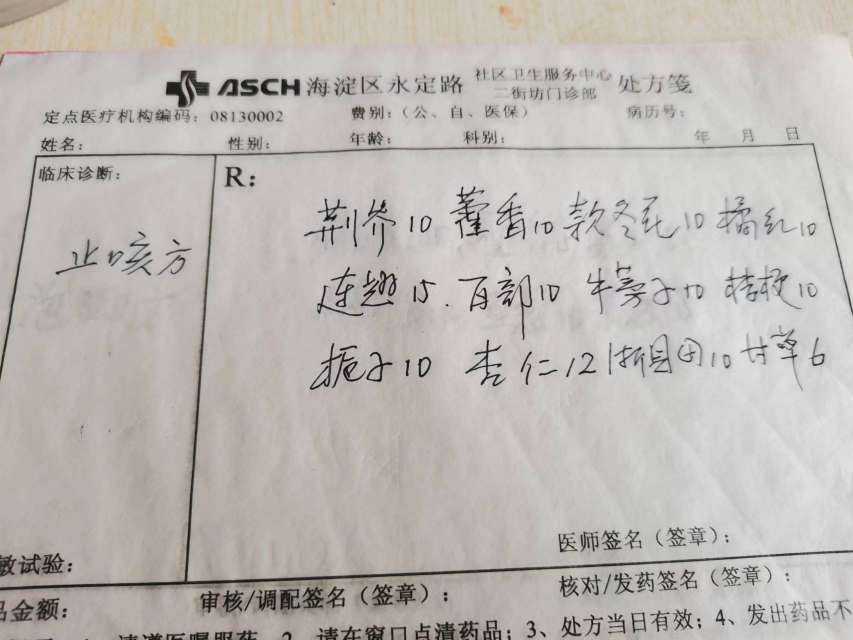 ASCH 海淀区永定路 社区卫生服务中心 二街坊门诊部 处方笺
定点医疗机构编码：08130002 费别：（公、自、医保） 病历号：
姓名： 性别： 年龄： 科别： 年 月 日
临床诊断：
止咳方
R：
荆芥10 藿香10 款冬花10 橘红10
连翘15. 百部10 牛蒡子10 桔梗10
栀子10 杏仁12 浙贝母10 甘草6
医师签名（签章）：
敏试验：
品金额： 审核/调配签名（签章）： 核对/发药签名（签章）：
请遵医嘱服药 2、请在窗口点清药品；3、处方当日有效；4、发出药品不